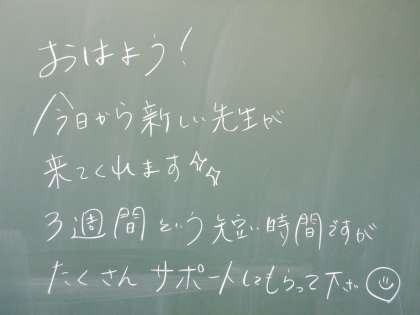 おはよう!
今日から新しい先生が
来てくれます✨
3週間という短い時間ですが
たくさんサポートしてもらって下さい☺